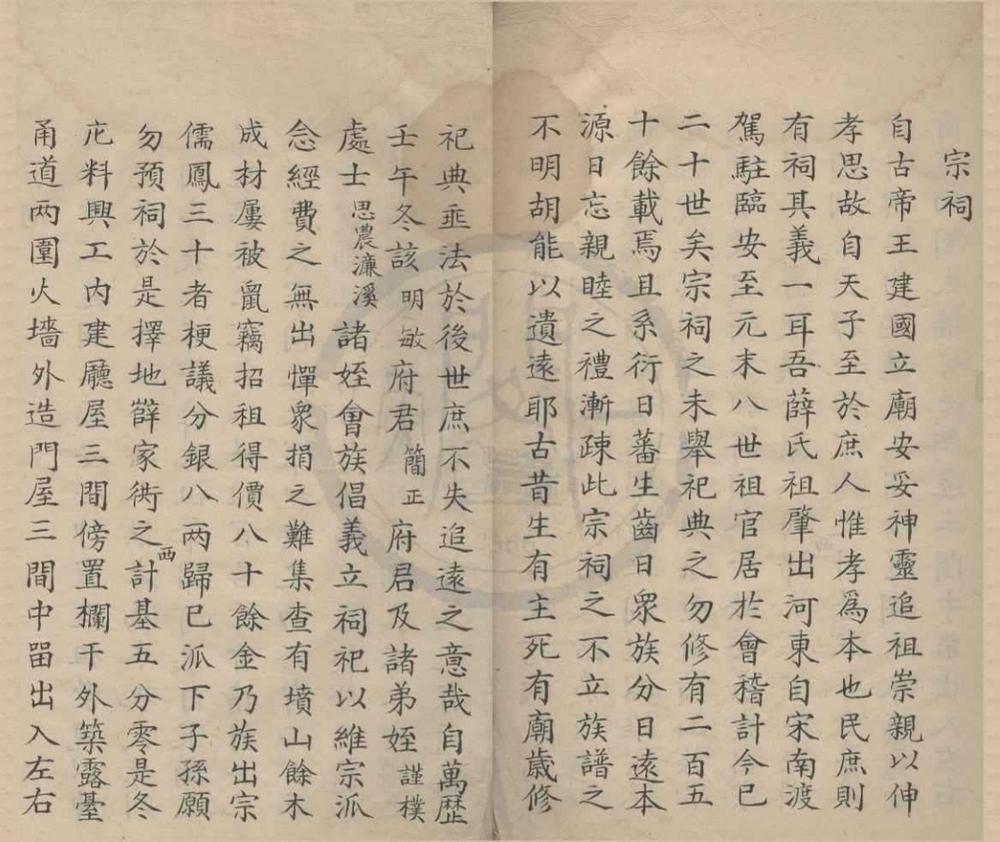 宗祠
自古帝王建國立廟安妥神靈追祖崇親以伸
孝思故自天子至於庶人惟孝為本也民庶則
有祠其義一耳吾薛氏祖肇出河東自宋南渡
駕駐臨安至元末八世祖官居於會稽計今已
二十世矣宗祠之未舉祀典之勿修有二百五
十餘載焉且系衍日蕃生齒日衆族分日遠本
源日忘親睦之禮漸疎此宗祠之不立族譜之
不明胡能以遺遠耶古昔生有主死有廟歲修
祀典垂法於後世庶不失追遠之意哉自萬歷
壬午冬該明敏府君簡正府君及諸弟姪謹樸
處士思農濂溪諸姪會族倡義立祠祀以維宗派
念經費之無出憚衆捐之難集查有墳山餘木
成材屢被鼠竊招祖得價八十餘金乃族出宗
儒鳳三十者梗議分銀八两歸已派下子孫願
勿預祠於是擇地薛家衖之西計基五分零是冬
庀料興工内建廳屋三間傍置欄干外築露臺
甬道两圍火墻外造門屋三間中畱出入左右